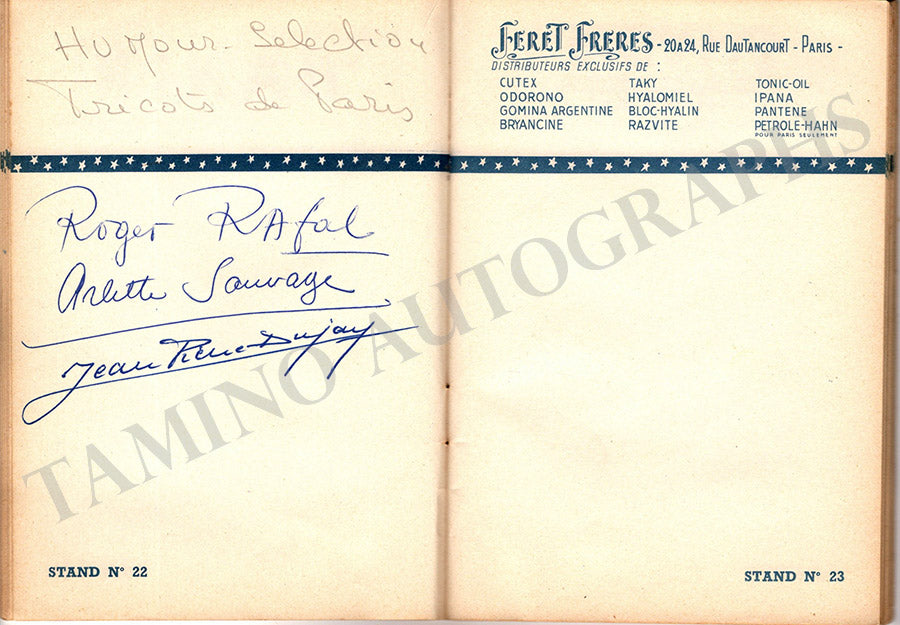 Humour-Selection
Tricots de Paris
Roger RAfal
Arlette Sauvage
Jean Pierre Dujay
STAND Nº 22
FERET FRERES - 20A24, RUE DAUTANCOURT - PARIS -
DISTRIBUTEURS EXCLUSIFS DE :
CUTEX TAKY TONIC-OIL
ODORONO HYALOMIEL IPANA
GOMINA ARGENTINE BLOC-HYALIN PANTENE
BRYANCINE RAZVITE PETROLE-HAHN
POUR PARIS SEULEMENT
STAND Nº 23
TAMINO AUTOGRAPHS